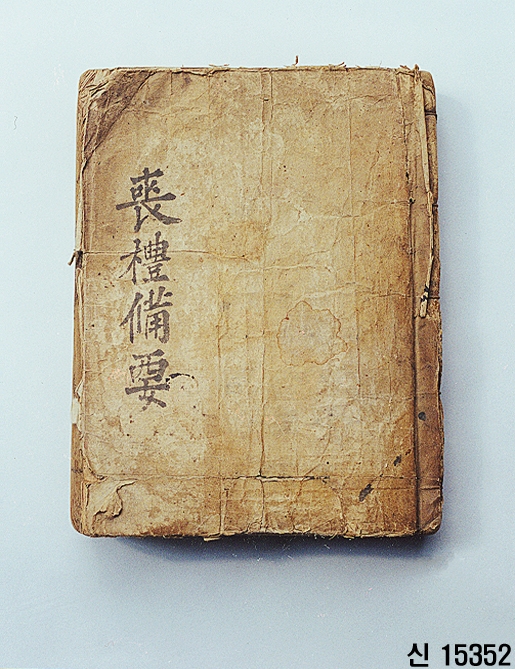 喪禮備要
신 15352